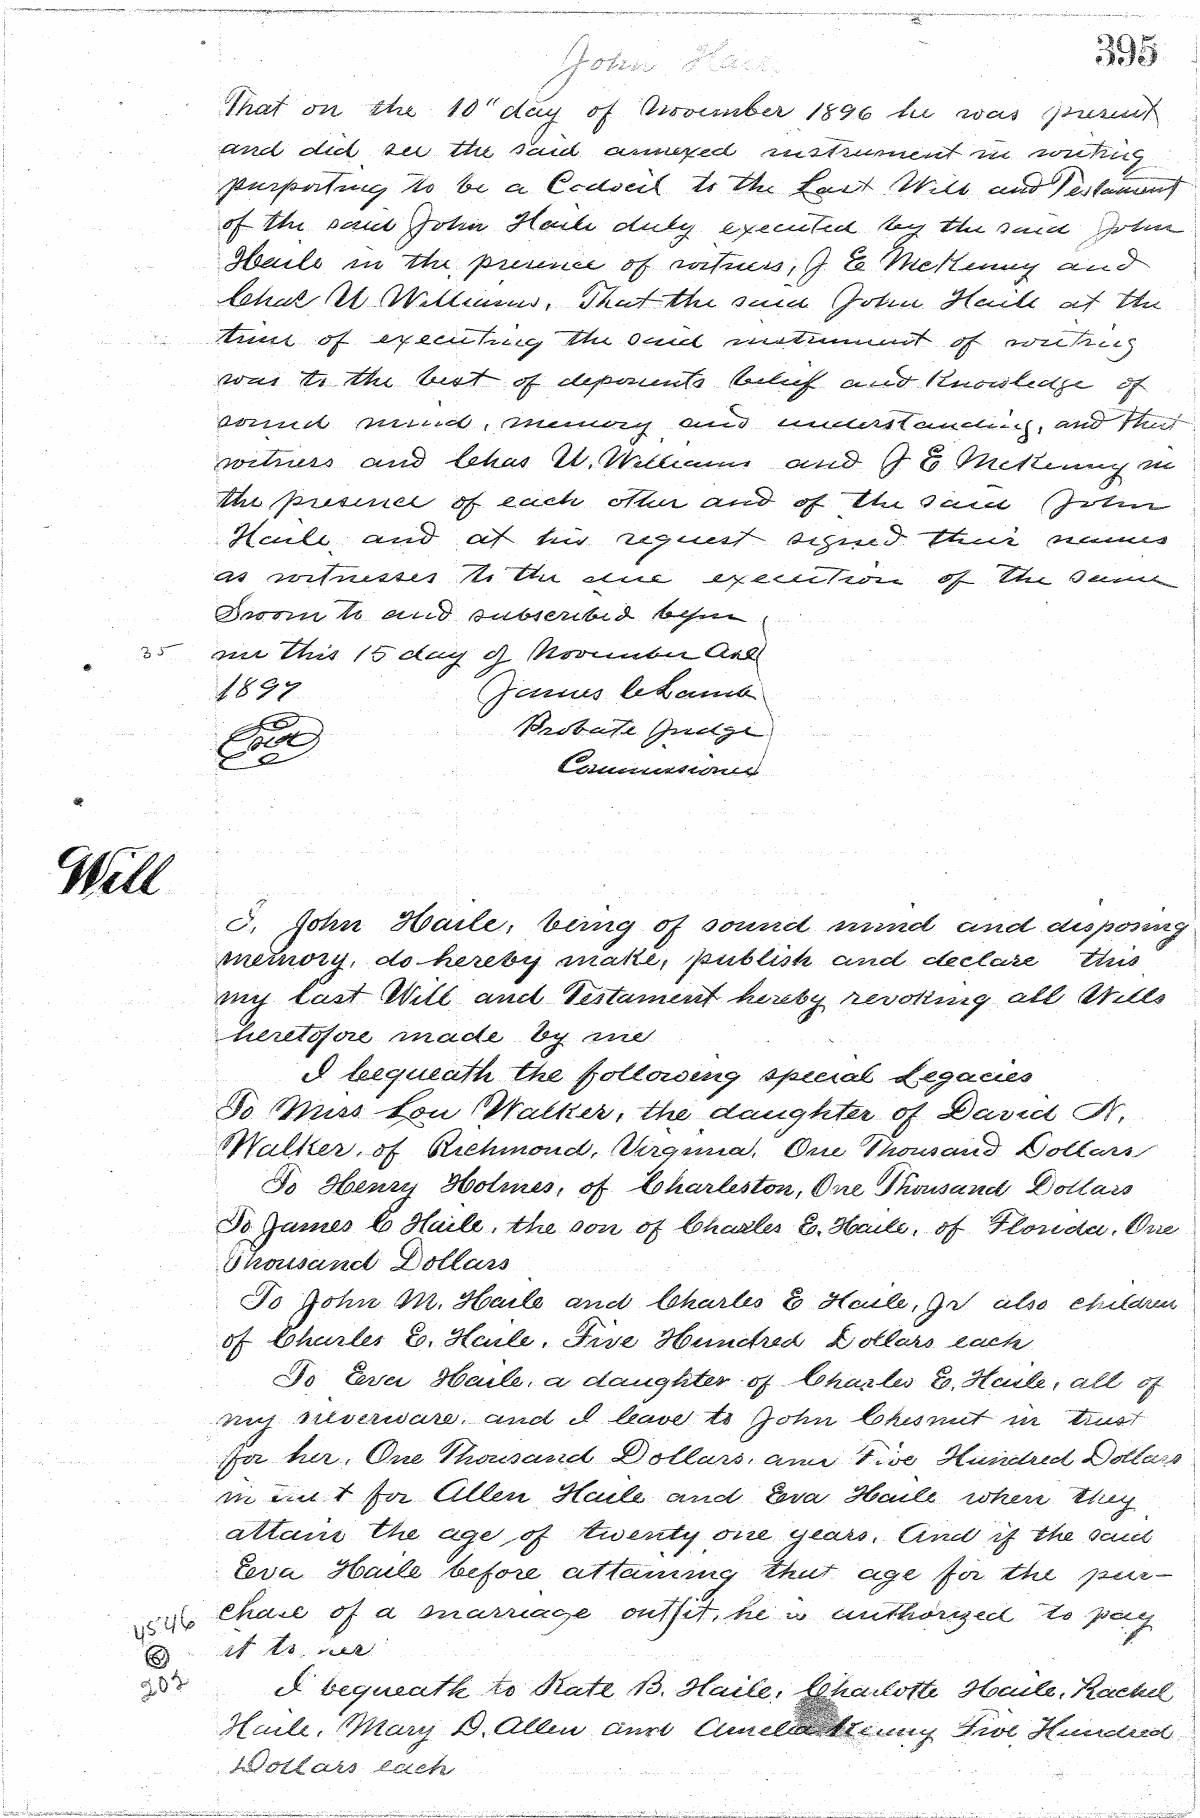 John Haile
395
That on the 10" day of November 1896 he was present
and did see the said annexed instrument in writing
purporting to be a Codocil to the Last Will and Testament
of the said John Haile duly executed by the said John
Haile in the presence of witness, J E McKenny and
Chas U Williams. That the said John Haile at the
time of executing the said instrument of writing
was to the best of deponents belief and Knowledge of
sound mind, memory and understanding, and that
witness and Chas U. Williams and J E McKenny in
the presence of each other and of the said John
Haile and at his request signed their names
as witnesses to the due execution of the same
Sworn to and subscribed before
35
me this 15 day of November
1897
James C Lamb
Probate Judge
Seal
Commissioner
Will
I, John Haile, being of sound mind and disposing
memory, do hereby make, publish and declare this
my last Will and Testament hereby revoking all Wills
heretofore made by me
I bequeath the following special Legacies
To Miss Lou Walker, the daughter of David N.
Walker, of Richmond, Virginia, One Thousand Dollars
To Henry Holmes, of Charleston, One Thousand Dollars
To James C Haile, the son of Charles E. Haile, of Florida, One
Thousand Dollars
To John M. Haile and Charles E Haile, Jr also children
of Charles E. Haile, Five Hundred Dollars each
To Eva Haile, a daughter of Charles E. Haile, all of
my silverware, and I leave to John Chesnut in trust
for her, One Thousand Dollars, and Five Hundred Dollars
in trust for Allen Haile and Eva Haile when they
attain the age of twenty one years. And if the said
Eva Haile before attaining that age for the pur-
chase of a marriage outfit, he is authorized to pay
4546
it to her
202
I bequeath to Kate B. Haile, Charlotte Haile, Rachel
Haile, Mary D. Allen and Amelia Kenny Five Hundred
Dollars each